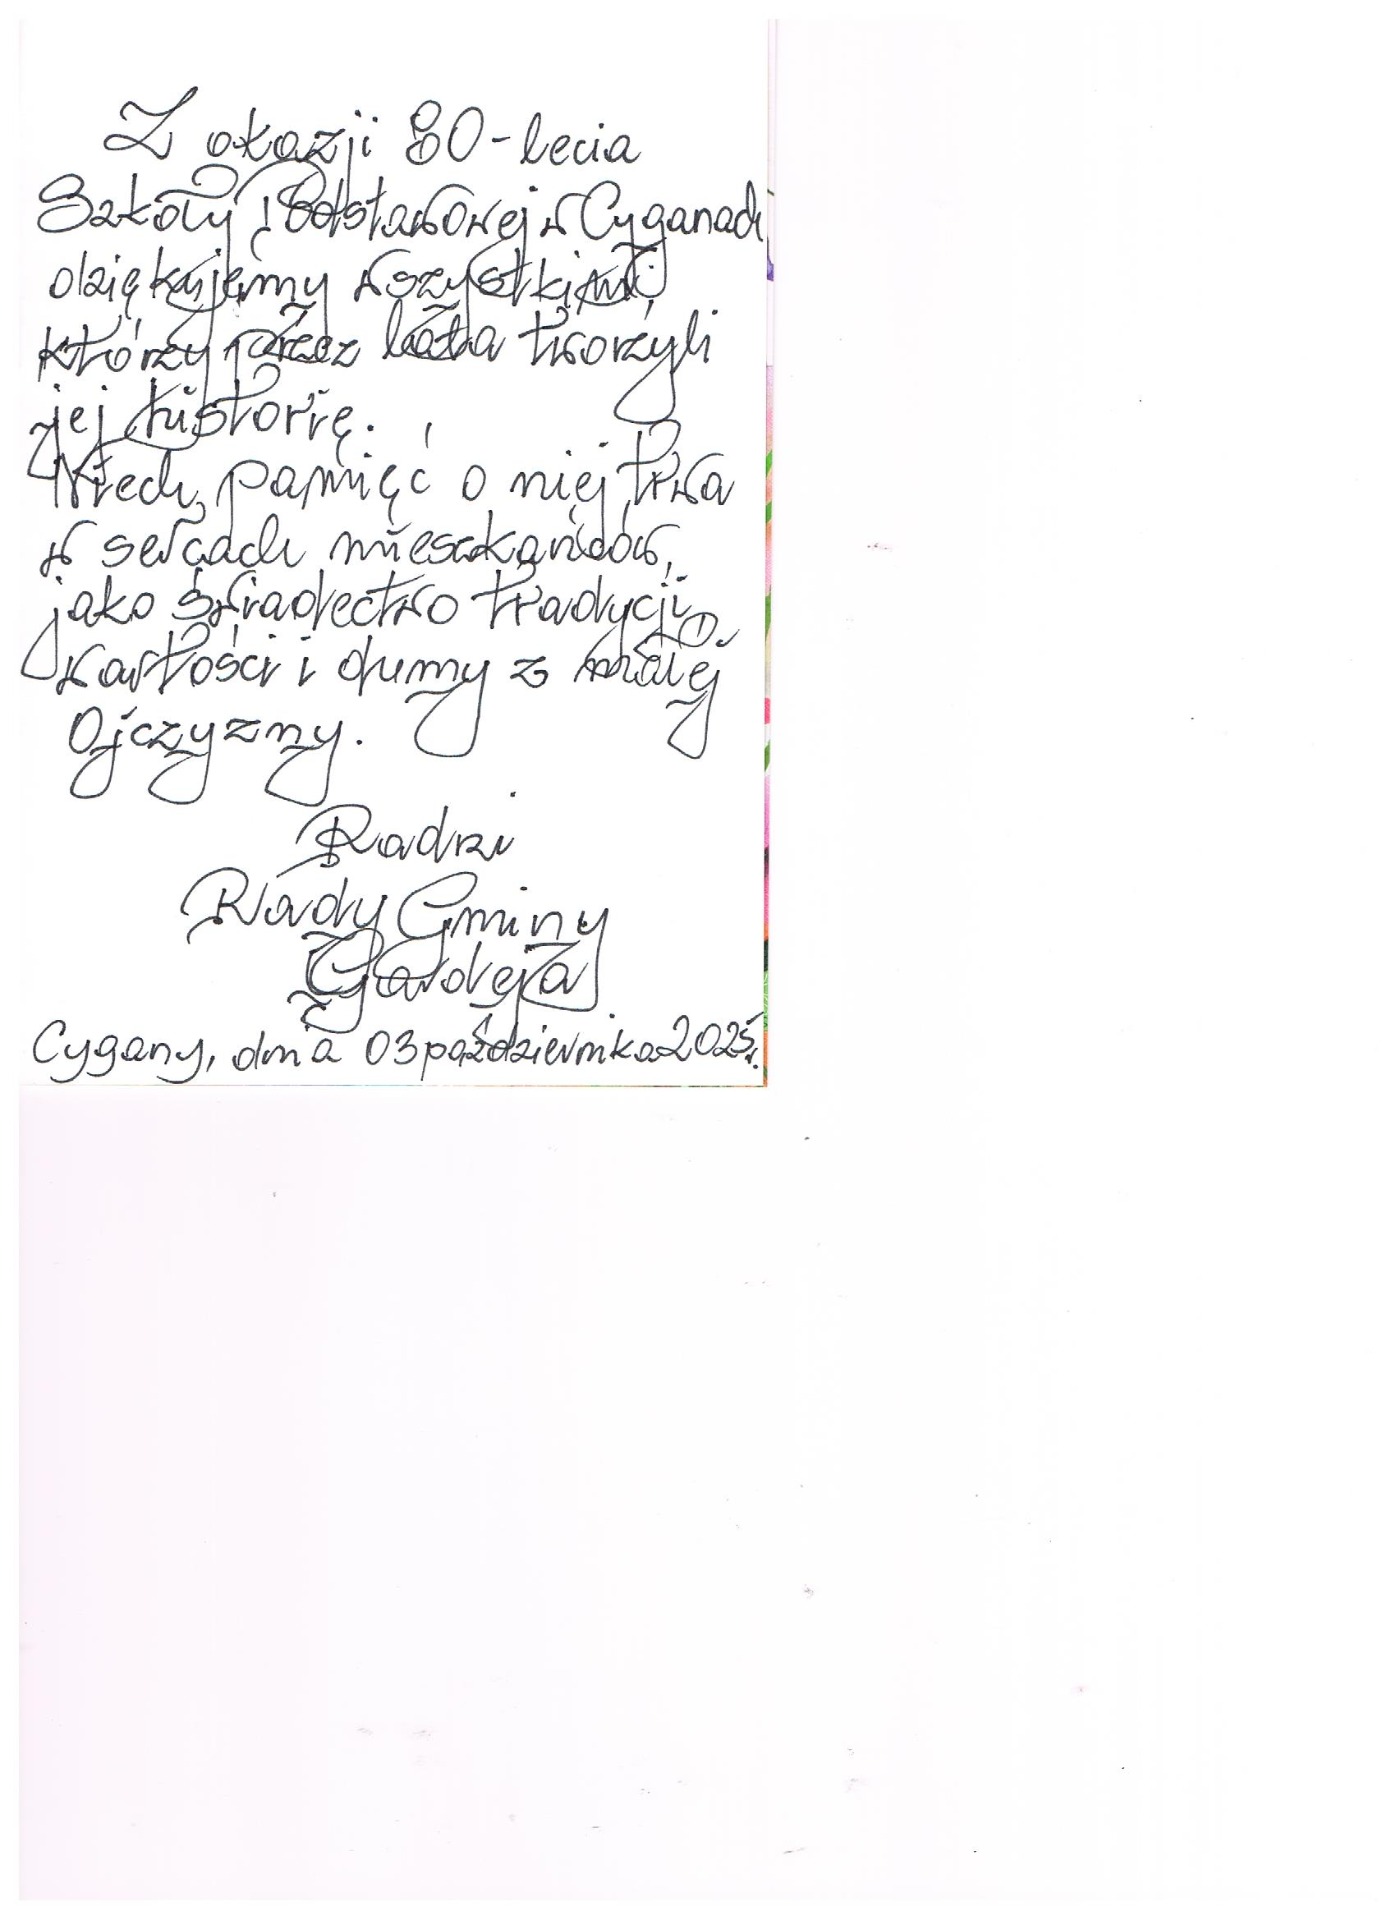 Z okazji 80-lecia
Szkoły Podstawowej w Cyganach
dziękujemy wszystkim,
którzy przez lata tworzyli
jej historię.
Niech pamięć o niej trwa
w sercach mieszkańców,
jako świadectwo tradycji,
wartości i dumy z małej
Ojczyzny.
Radni
Rady Gminy
Gardeja
Cygany, dnia 03 października 2025r.